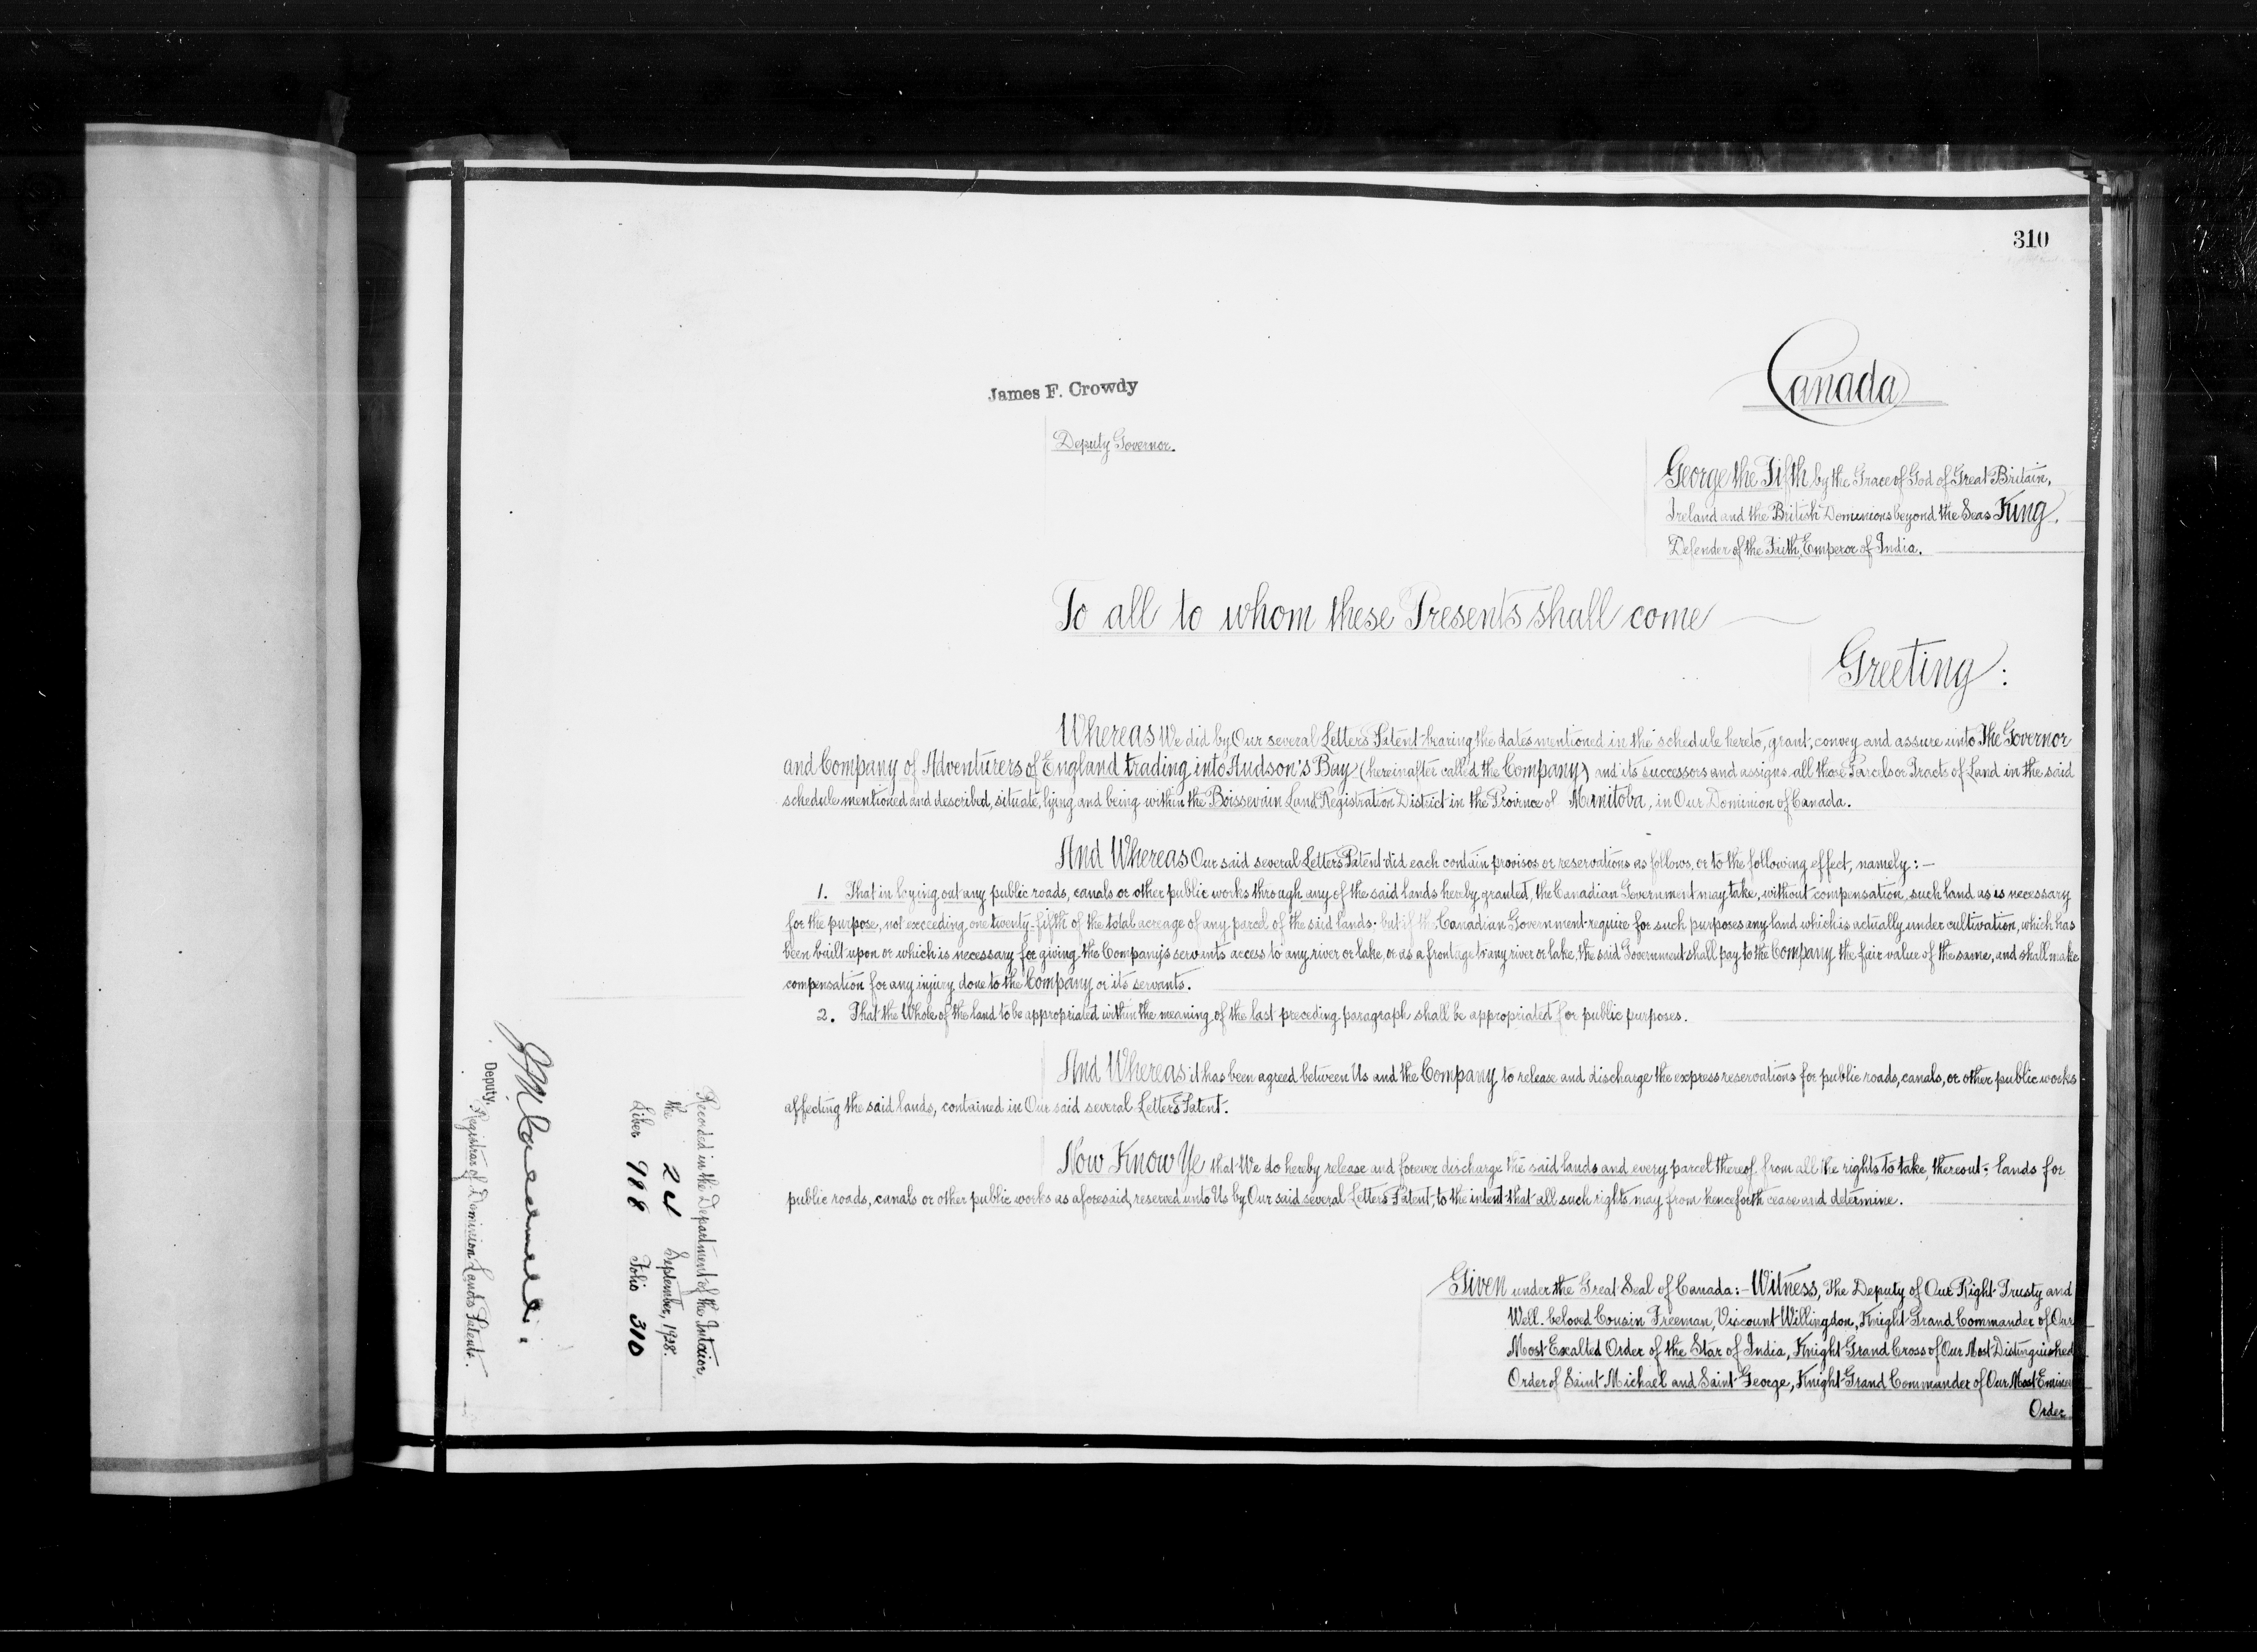 310
Canada
James F. Crowdy
Deputy Governor.
George the Fifth by the Grace of God of Great Britain,
Ireland and the British Dominions beyond the Seas King,
Defender of the Faith, Emperor of India.
To all to whom these Presents shall come
Greeting:
Whereas We did by Our several Letters Patent bearing the dates mentioned in the schedule hereto, grant, convey and assure unto The Governor
and Company of Adventurers of England trading into Hudson's Bay (hereinafter called the Company) and its successors and assigns all those Parcels or Tracts of Land in the said
schedule mentioned and described, situate, lying and being within the Boissevain Land Registration District in the Province of Manitoba, in Our Dominion of Canada.
And Whereas Our said several Letters Patent did each contain provisos or reservations as follows, or to the following effect, namely:—
1. That in laying out any public roads, canals or other public works through any of the said lands hereby granted, the Canadian Government may take, without compensation, such land as is necessary
for the purpose, not exceeding one twenty-fifth of the total acreage of any parcel of the said lands; but if the Canadian Government require for such purposes any land which is actually under cultivation, which has
been built upon or which is necessary for giving the Company's servants access to any river or lake, or as a frontage to any river or lake, the said Government shall pay to the Company the fair value of the same, and shall make
compensation for any injury done to the Company or its servants.
2. That the Whole of the land to be appropriated within the meaning of the last preceding paragraph shall be appropriated for public purposes.
And Whereas it has been agreed between Us and the Company to release and discharge the express reservations for public roads, canals, or other public works
affecting the said lands, contained in Our said several Letters Patent.
Now Know Ye that We do hereby release and forever discharge the said lands and every parcel thereof from all the rights to take, thereout, lands for
public roads, canals or other public works as aforesaid, reserved unto Us by Our said several Letters Patent, to the intent that all such rights may from henceforth cease and determine.
Given under the Great Seal of Canada:- Witness, The Deputy of Our Right Trusty and
Well-beloved Cousin Freeman, Viscount Willingdon, Knight Grand Commander of Our
Most Exalted Order of the Star of India, Knight Grand Cross of Our Most Distinguished
Order of Saint Michael and Saint George, Knight Grand Commander of Our Most Eminent
Order
Recorded in the Department of the Interior,
the September, 1928.
Liber 998 Folio 310
Deputy,
Registrar of Dominion Lands Patents.